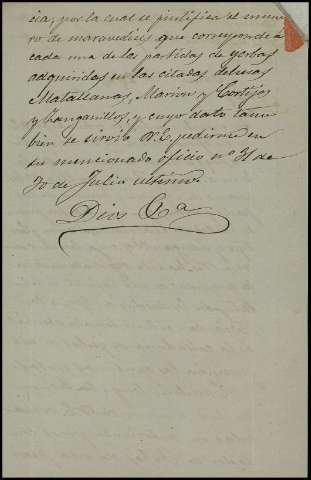 cia, por la cual se justifica el nume-
ro de maravedises que corresponde á
cada una de las partidas de yerbas
adquiridas en las citadas dehesas
Matallana, Marion y Cortijos
y Zanganillos, y cuyo dato tam-
bien se sirvió V.E. pedirme en
su mencionado oficio nº 31 de
30 de Julio ultimo.
Dios &a